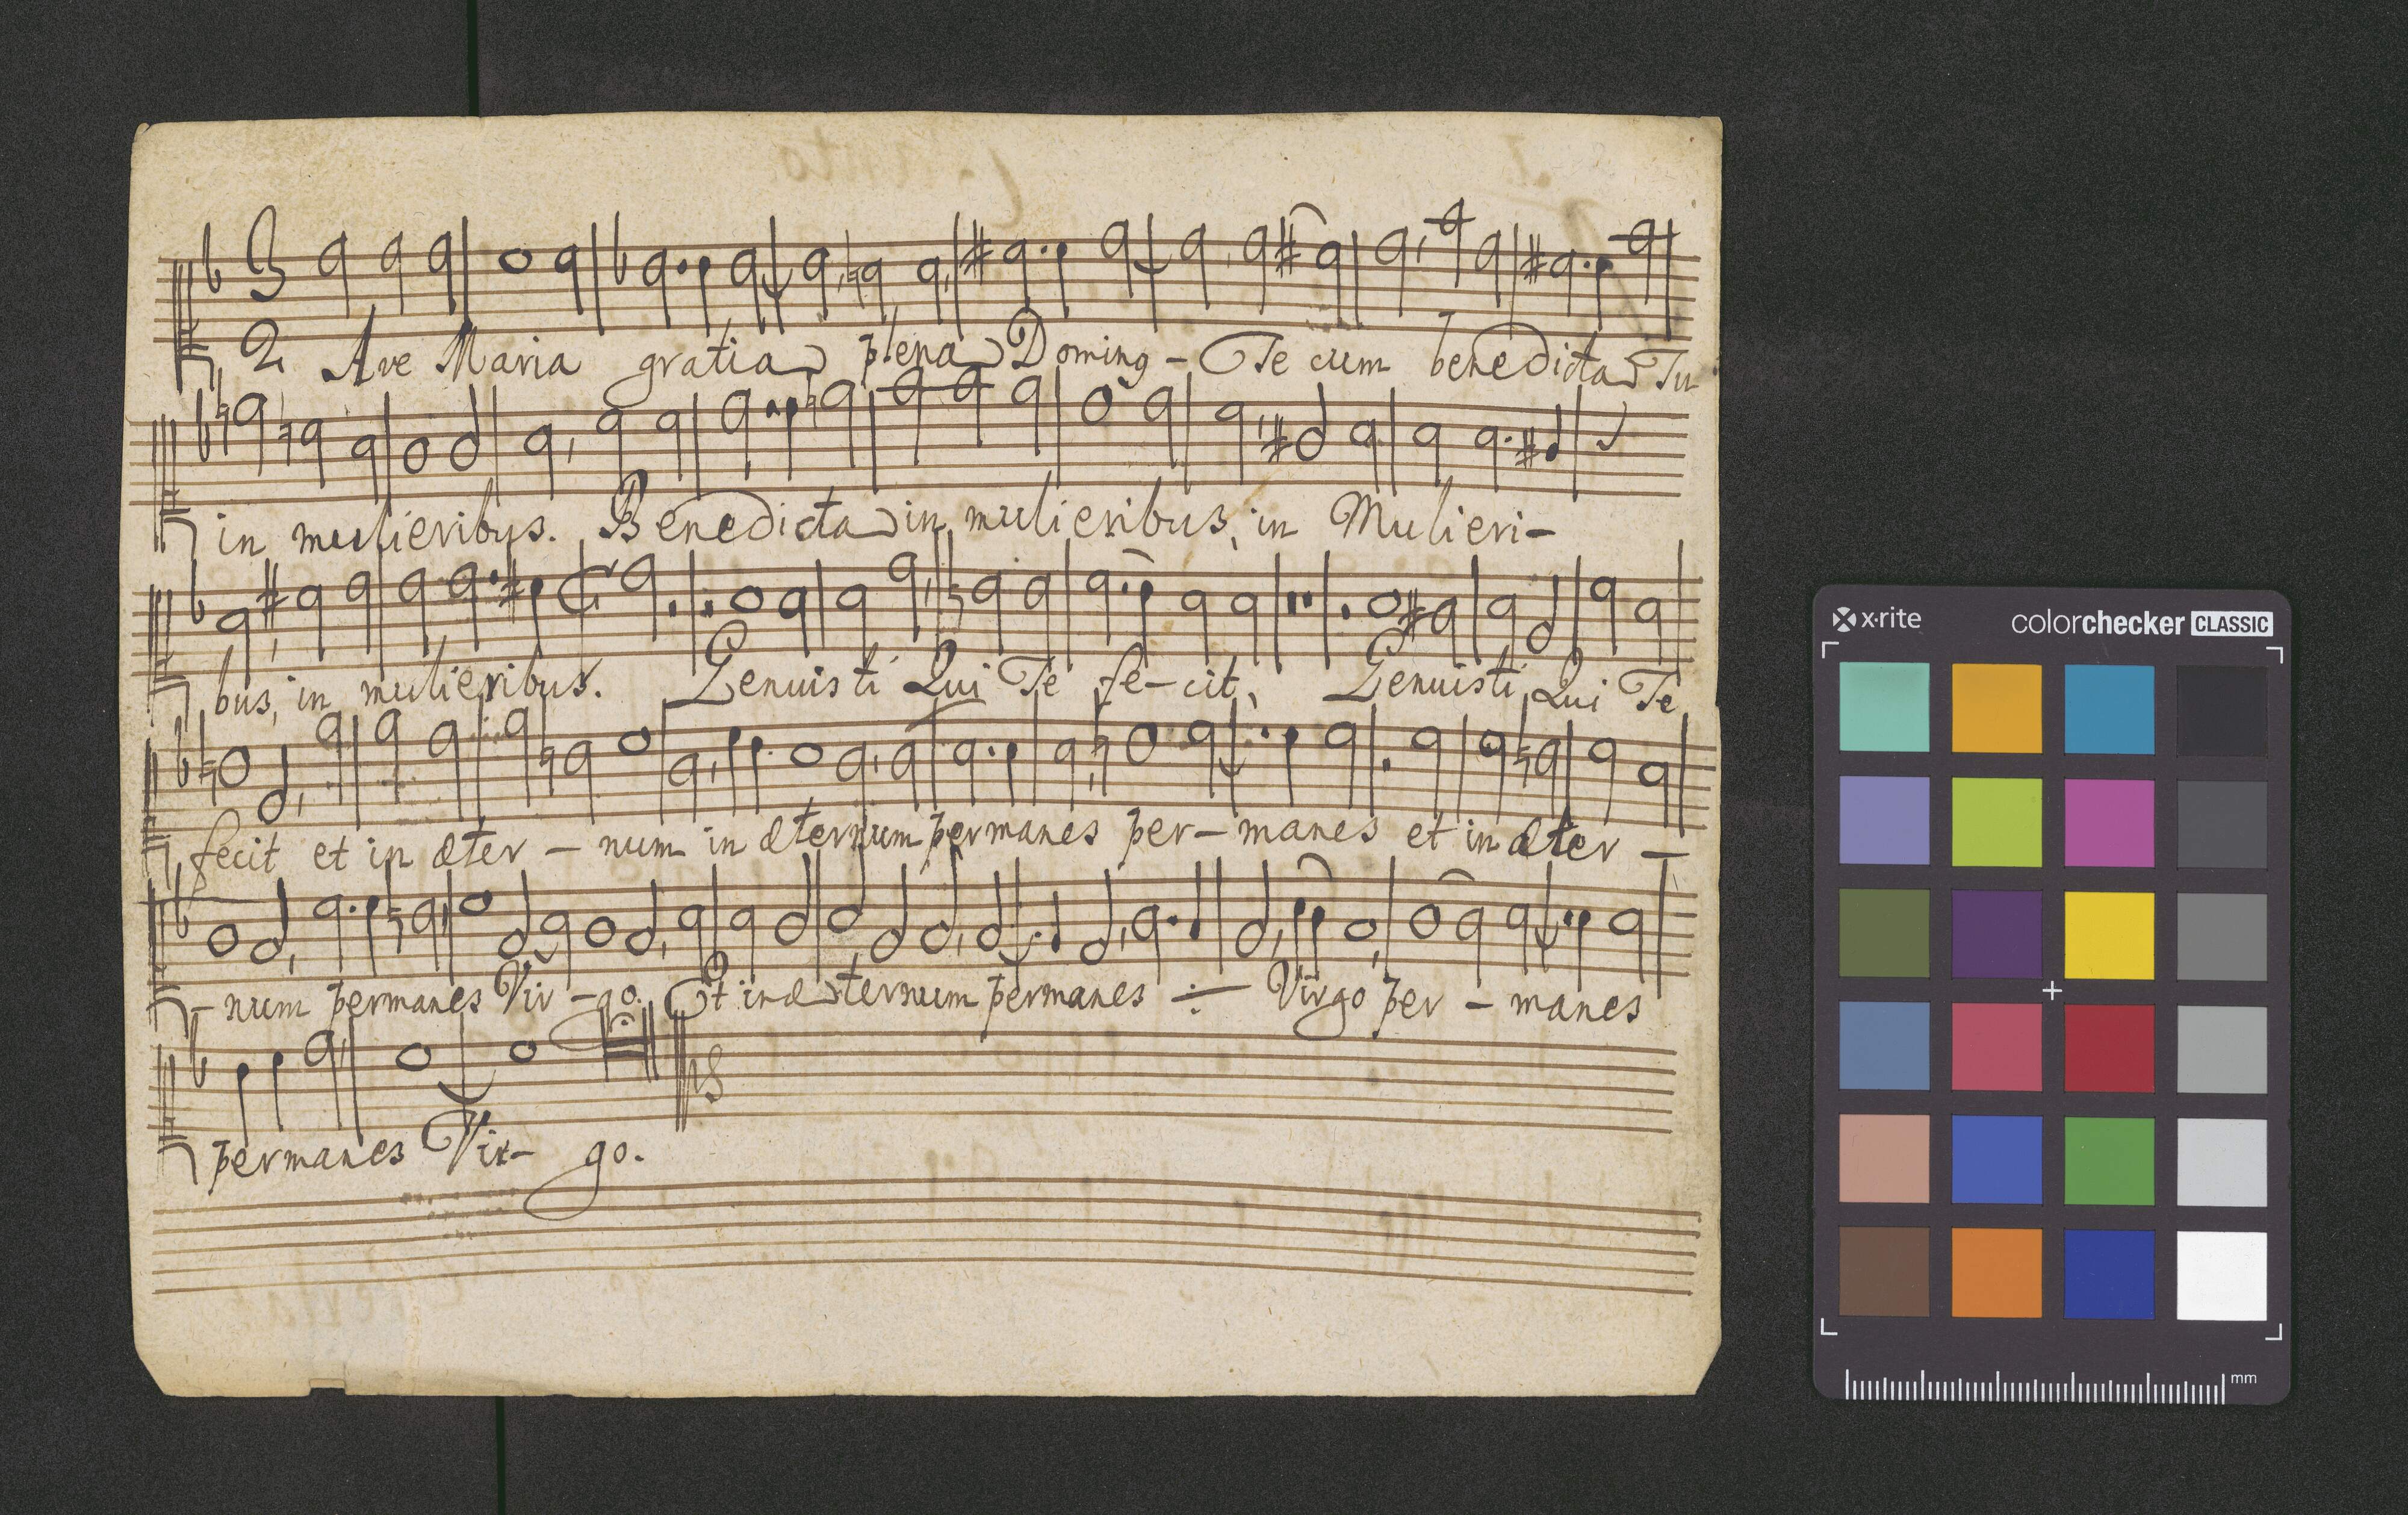 3
2 Ave Maria gratia plena Doming - Te cum benedicta Tu
in mulieribus. Benedicta in mulieribus, in Mulieri-
bus, in mulieribus. Genuisti Qui Te fe-cit, Genuisti Qui Te
fecit et in æter - num in æternum permanes per-manes et in æter -
- num permanes Vir-go. Et in æternum permanes ÷ Virgo per - manes
permanes Vir- go.
x·rite
colorchecker CLASSIC
mm